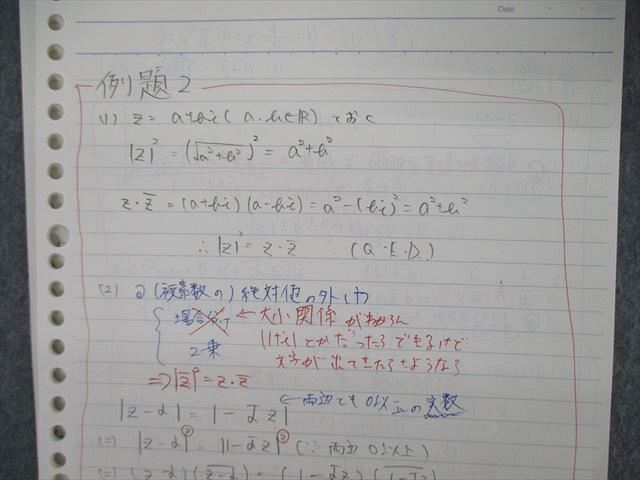 Date
例題2
(1) z = a+bi (a.b∈R) とおく
|z|² = (√a²+b²)² = a²+b²
z・z̄ = (a+bi)(a-bi) = a²-(bi)² = a²+b²
∴ |z|² = z・z̄ (Q.E.D.)
(2) ②(複素数の) 絶対値の外し方
場合分け ← 大小関係がわからん
2乗 |1+i|とかだったらできるけど
文字が出てきたらさようなら
⇒ |z|² = z・z̄
|z-α| = |1-ᾱz| ← 両辺とも0以上の実数
(=) |z-α|² = |1-ᾱz|² (∵ 両辺0以上)
(=) (z-α)(z-α) = (1-ᾱz)(1-ᾱz)